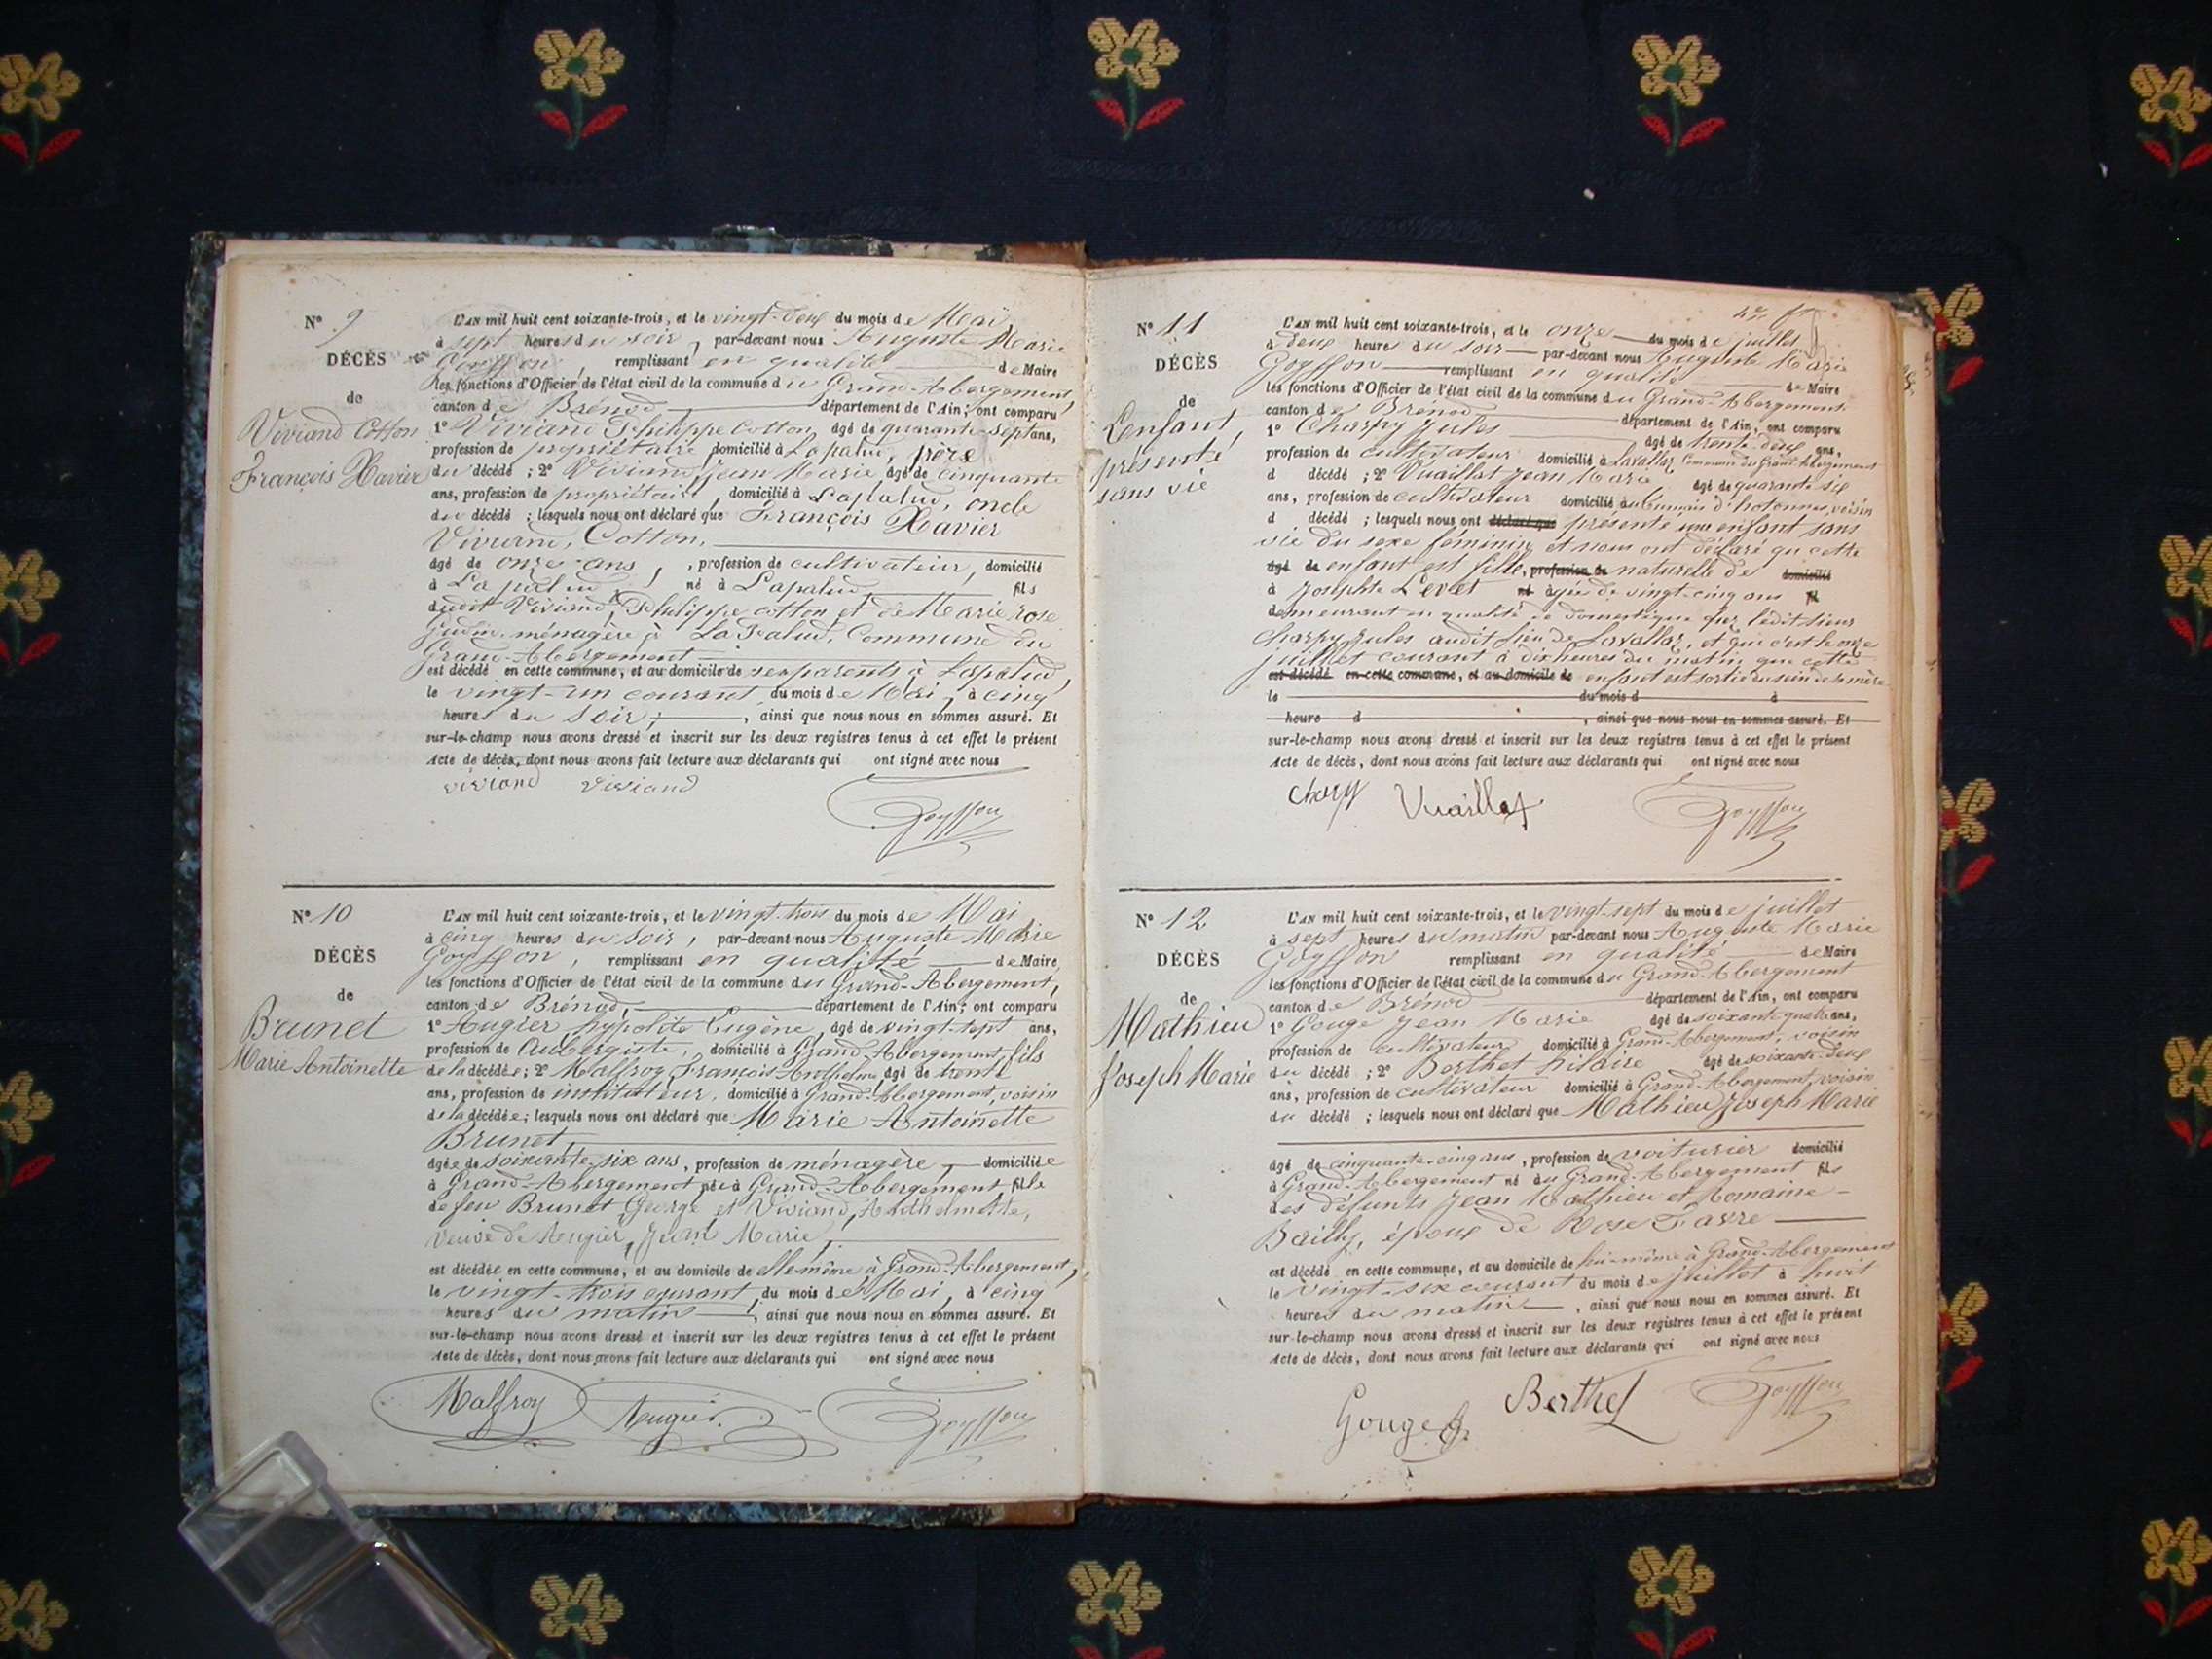 N° 9
DÉCÈS
de
Viviand Cotton
François Xavier
L'AN mil huit cent soixante-trois, et le vingt-deux du mois de Mai
à sept heures du soir, par-devant nous Auguste Marie
Goyffon, remplissant en qualité de Maire
les fonctions d'Officier de l'état civil de la commune du Grand-Abergement,
canton de Brénod département de l'Ain, ont comparu
1° Viviand Philippe Cotton, âgé de quarante-sept ans,
profession de propriétaire domicilié à Lapalud, père
du décédé ; 2° Viviand, Jean Marie, âgé de cinquante
ans, profession de propriétaire, domicilié à Lapalud, oncle
du décédé ; lesquels nous ont déclaré que François Xavier
Viviand, Cotton,
âgé de onze ans, profession de cultivateur, domicilié
à Lapalud, né à Lapalud fils
dudit Viviand, Philippe Cotton et de Marie rose
ménagère à LaPalud, Commune du
Grand-Abergement
est décédé en cette commune, et au domicile de ses parents à Lapalud,
le vingt-un courant du mois de Mai, à cinq
heures du soir, ainsi que nous nous en sommes assuré. Et
sur-le-champ nous avons dressé et inscrit sur les deux registres tenus à cet effet le présent
Acte de décès, dont nous avons fait lecture aux déclarants qui ont signé avec nous
viviand viviand Goyffon
N° 10
DÉCÈS
de
Brunet
Marie Antoinette
L'AN mil huit cent soixante-trois, et le vingt-trois du mois de Mai
à cinq heures du soir, par-devant nous Auguste Marie
Goyffon, remplissant en qualité de Maire
les fonctions d'Officier de l'état civil de la commune du Grand-Abergement,
canton de Brénod, département de l'Ain, ont comparu
1° Augier, hypolite Eugène, âgé de vingt-sept ans,
profession de Aubergiste, domicilié à Grand-Abergement, fils
de la décédée ; 2° Malfroy, François Anthelme, âgé de trente
ans, profession de instituteur, domicilié à Grand-Abergement, voisin
de la décédée ; lesquels nous ont déclaré que Marie Antoinette
Brunet,
âgée de soixante-six ans, profession de ménagère, domiciliée
à Grand-Abergement, née à Grand-Abergement fille
de feu Brunet George et Viviand, Anthelmette,
veuve de Augier, Jean Marie,
est décédée en cette commune, et au domicile de elle même à Grand-Abergement,
le vingt-trois courant, du mois de Mai, à cinq
heures du matin, ainsi que nous nous en sommes assuré. Et
sur-le-champ nous avons dressé et inscrit sur les deux registres tenus à cet effet le présent
Acte de décès, dont nous avons fait lecture aux déclarants qui ont signé avec nous
Malfroy Augier Goyffon
N° 11
DÉCÈS
de
L'enfant,
présenté
sans vie
L'AN mil huit cent soixante-trois, et le onze du mois de juillet
à deux heures du soir par-devant nous Auguste Marie
Goyffon remplissant en qualité de Maire
les fonctions d'Officier de l'état civil de la commune du Grand-Abergement
canton de Brénod département de l'Ain, ont comparu
1° Charpy Jules âgé de trente-deux ans,
profession de cultivateur domicilié à Lavallaz Commune du Grand Abergement
d décédé ; 2° Vuaillat Jean Marie âgé de quarante six
ans, profession de cultivateur domicilié à d'hotonnes, voisin
d décédé ; lesquels nous ont déclaré que présenté une enfant sans
vie du sexe féminin, et nous ont déclaré qu cette
âgé de enfant est fille, profession de naturelle de domicilié
à Josephte Levet né âgée de vingt-cinq ans
demeurant en qualité de domestique chez ledit sieur
Charpy Jules audit lieu de Lavallaz, et que c'est le onze
juillet courant à dix heures du matin que cette
est décédé en cette commune, et au domicile de enfant est sortie du sein de sa mère
le du mois d à
heure d , ainsi que nous nous en sommes assuré. Et
sur-le-champ nous avons dressé et inscrit sur les deux registres tenus à cet effet le présent
Acte de décès, dont nous avons fait lecture aux déclarants qui ont signé avec nous
Vuaillat Goyffon
N° 12
DÉCÈS
de
Mathieu
Joseph Marie
L'AN mil huit cent soixante-trois, et le vingt-sept du mois de juillet
à sept heures du matin par-devant nous Auguste Marie
Goyffon remplissant en qualité de Maire
les fonctions d'Officier de l'état civil de la commune du Grand-Abergement
canton de Brénod département de l'Ain, ont comparu
1° Gouge Jean Marie âgé de soixante quatre ans,
profession de cultivateur domicilié à Grand-Abergement, voisin
du décédé ; 2° Berthet hilaire âgé de soixante-deux
ans, profession de cultivateur domicilié à Grand-Abergement, voisin
du décédé ; lesquels nous ont déclaré que Mathieu Joseph Marie
âgé de cinquante-cinq ans, profession de voiturier domicilié
à Grand-Abergement né au Grand-Abergement fils
des défunts Jean Mathieu et Romaine
Bailly, époux de Rose Favre
est décédé en cette commune, et au domicile de lui-même à Grand-Abergement
le vingt-six courant du mois de juillet à huit
heures du matin, ainsi que nous nous en sommes assuré. Et
sur-le-champ nous avons dressé et inscrit sur les deux registres tenus à cet effet le présent
Acte de décès, dont nous avons fait lecture aux déclarants qui ont signé avec nous
Gouge Berthet Goyffon